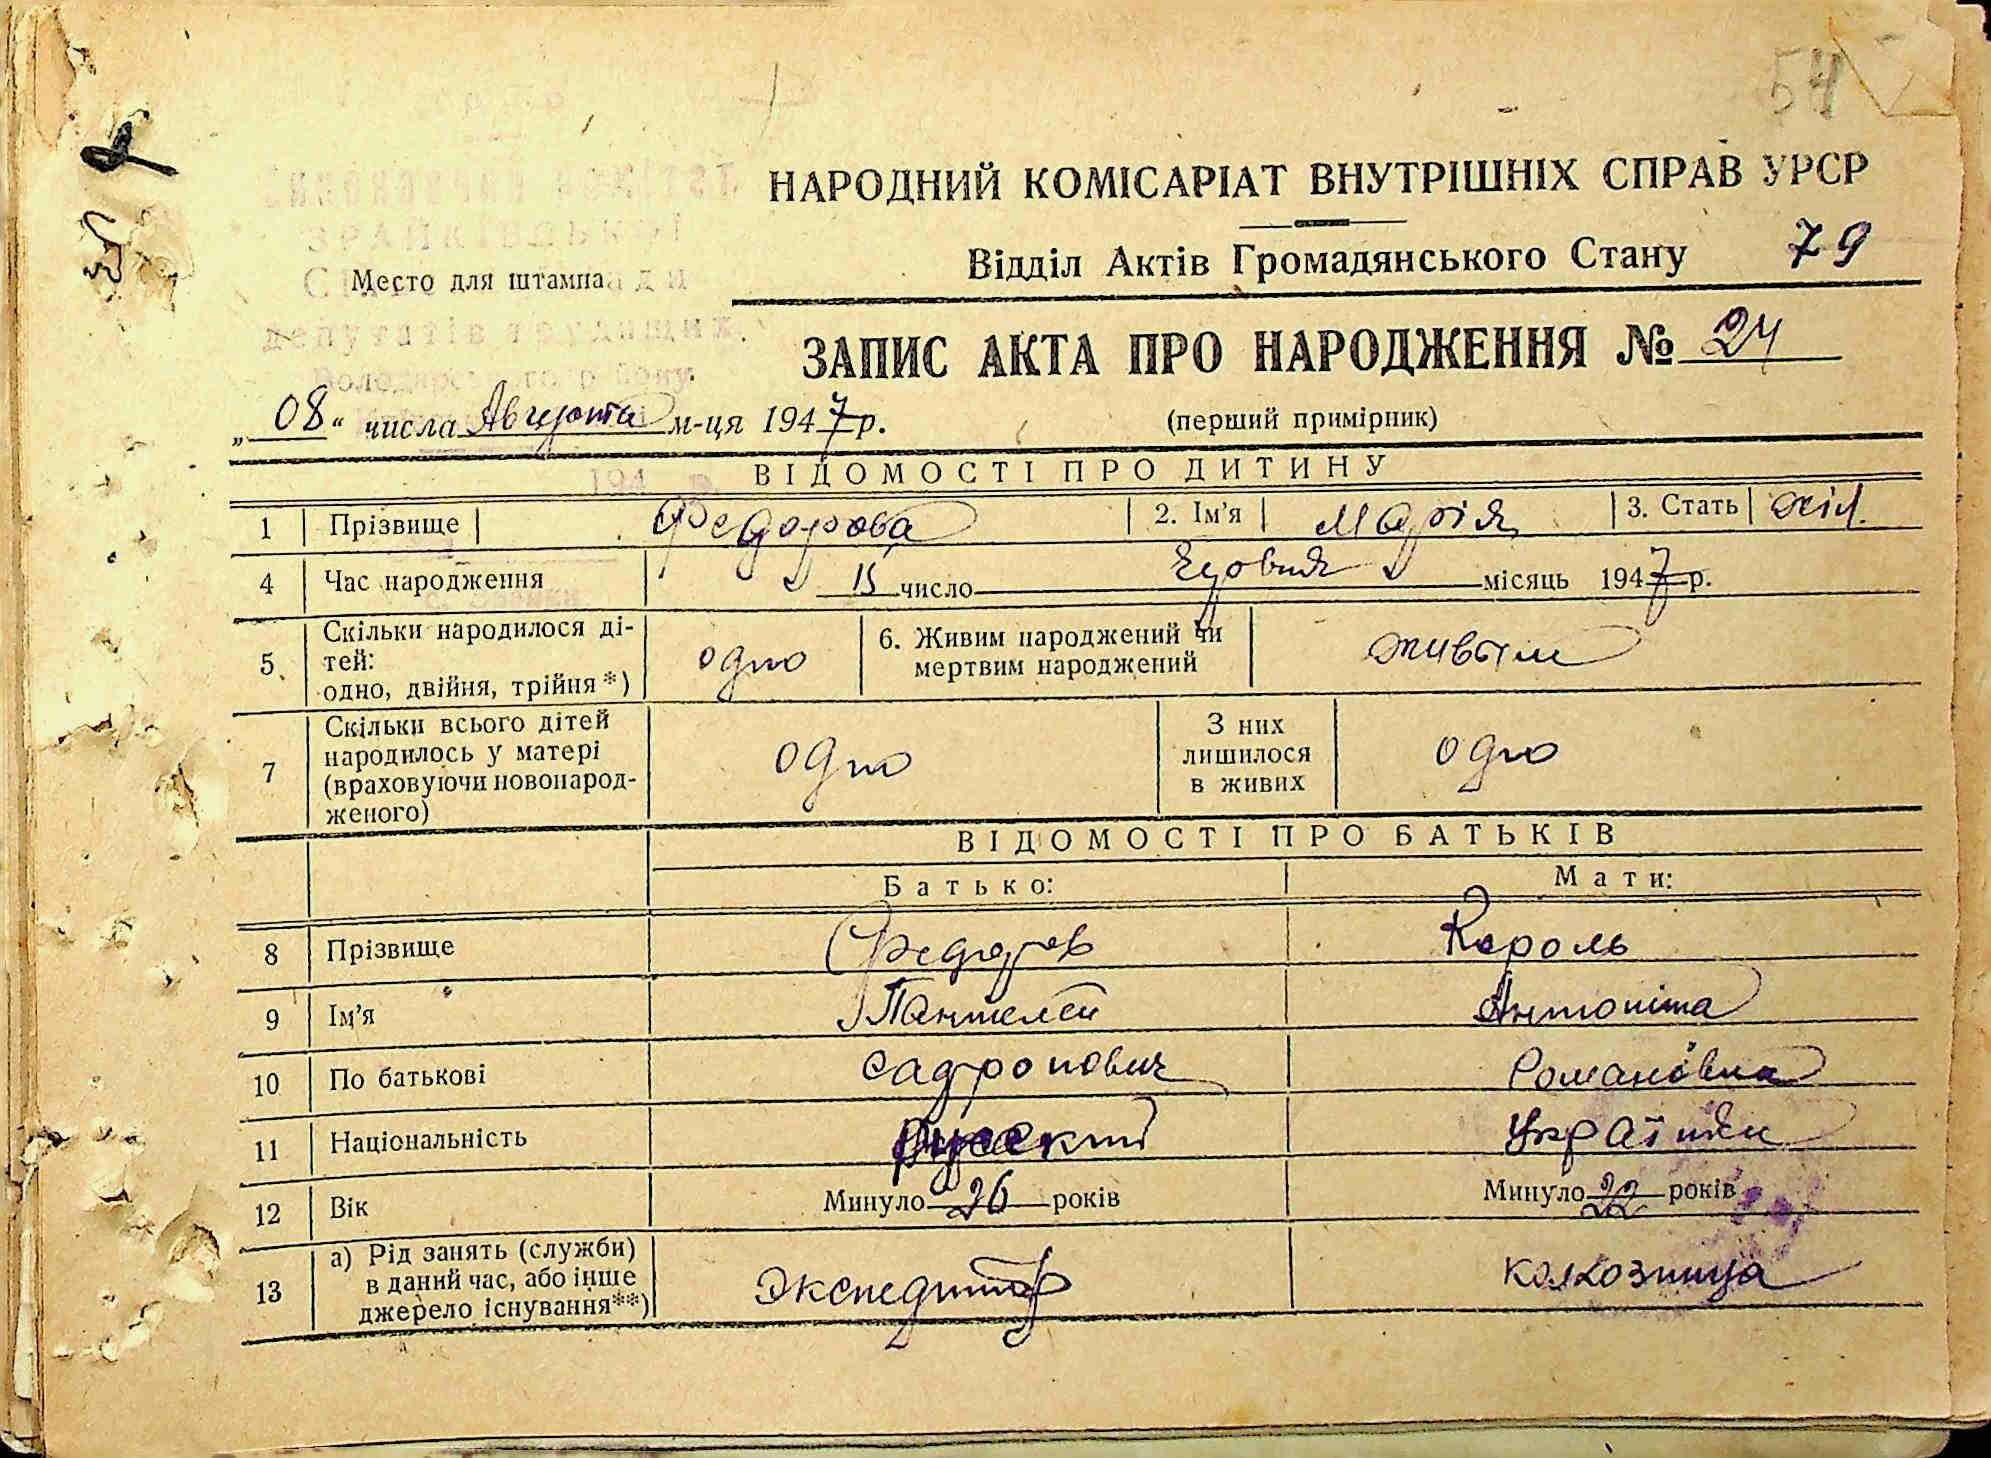 54
НАРОДНИЙ КОМІСАРІАТ ВНУТРІШНІХ СПРАВ УРСР
Відділ Актів Громадянського Стану 79
Место для штампа
депутатів трудящих
ЗАПИС АКТА ПРО НАРОДЖЕННЯ № 24
„08“ числа Августа м-ця 1947 р. (перший примірник)
ВІДОМОСТІ ПРО ДИТИНУ
1 Прізвище Федорова 2. Ім'я Марія 3. Стать жін.
4 Час народження 15 число місяць 1947 р.
5 Скільки народилося ді-
тей:
одно, двійня, трійня*) одно 6. Живим народжений чи
мертвим народжений живым
7 Скільки всього дітей
народилось у матері
(враховуючи новонарод-
женого) одно З них
лишилося
в живих одно
ВІДОМОСТІ ПРО БАТЬКІВ
Батько: Мати:
8 Прізвище Федоров Король
9 Ім'я Пантелей Антоніна
10 По батькові Романовна
11 Національність Русский
12 Вік Минуло 26 років Минуло 22 років
13 а) Рід занять (служби)
в даний час, або інше
джерело існування**) Экспедитор колхозница